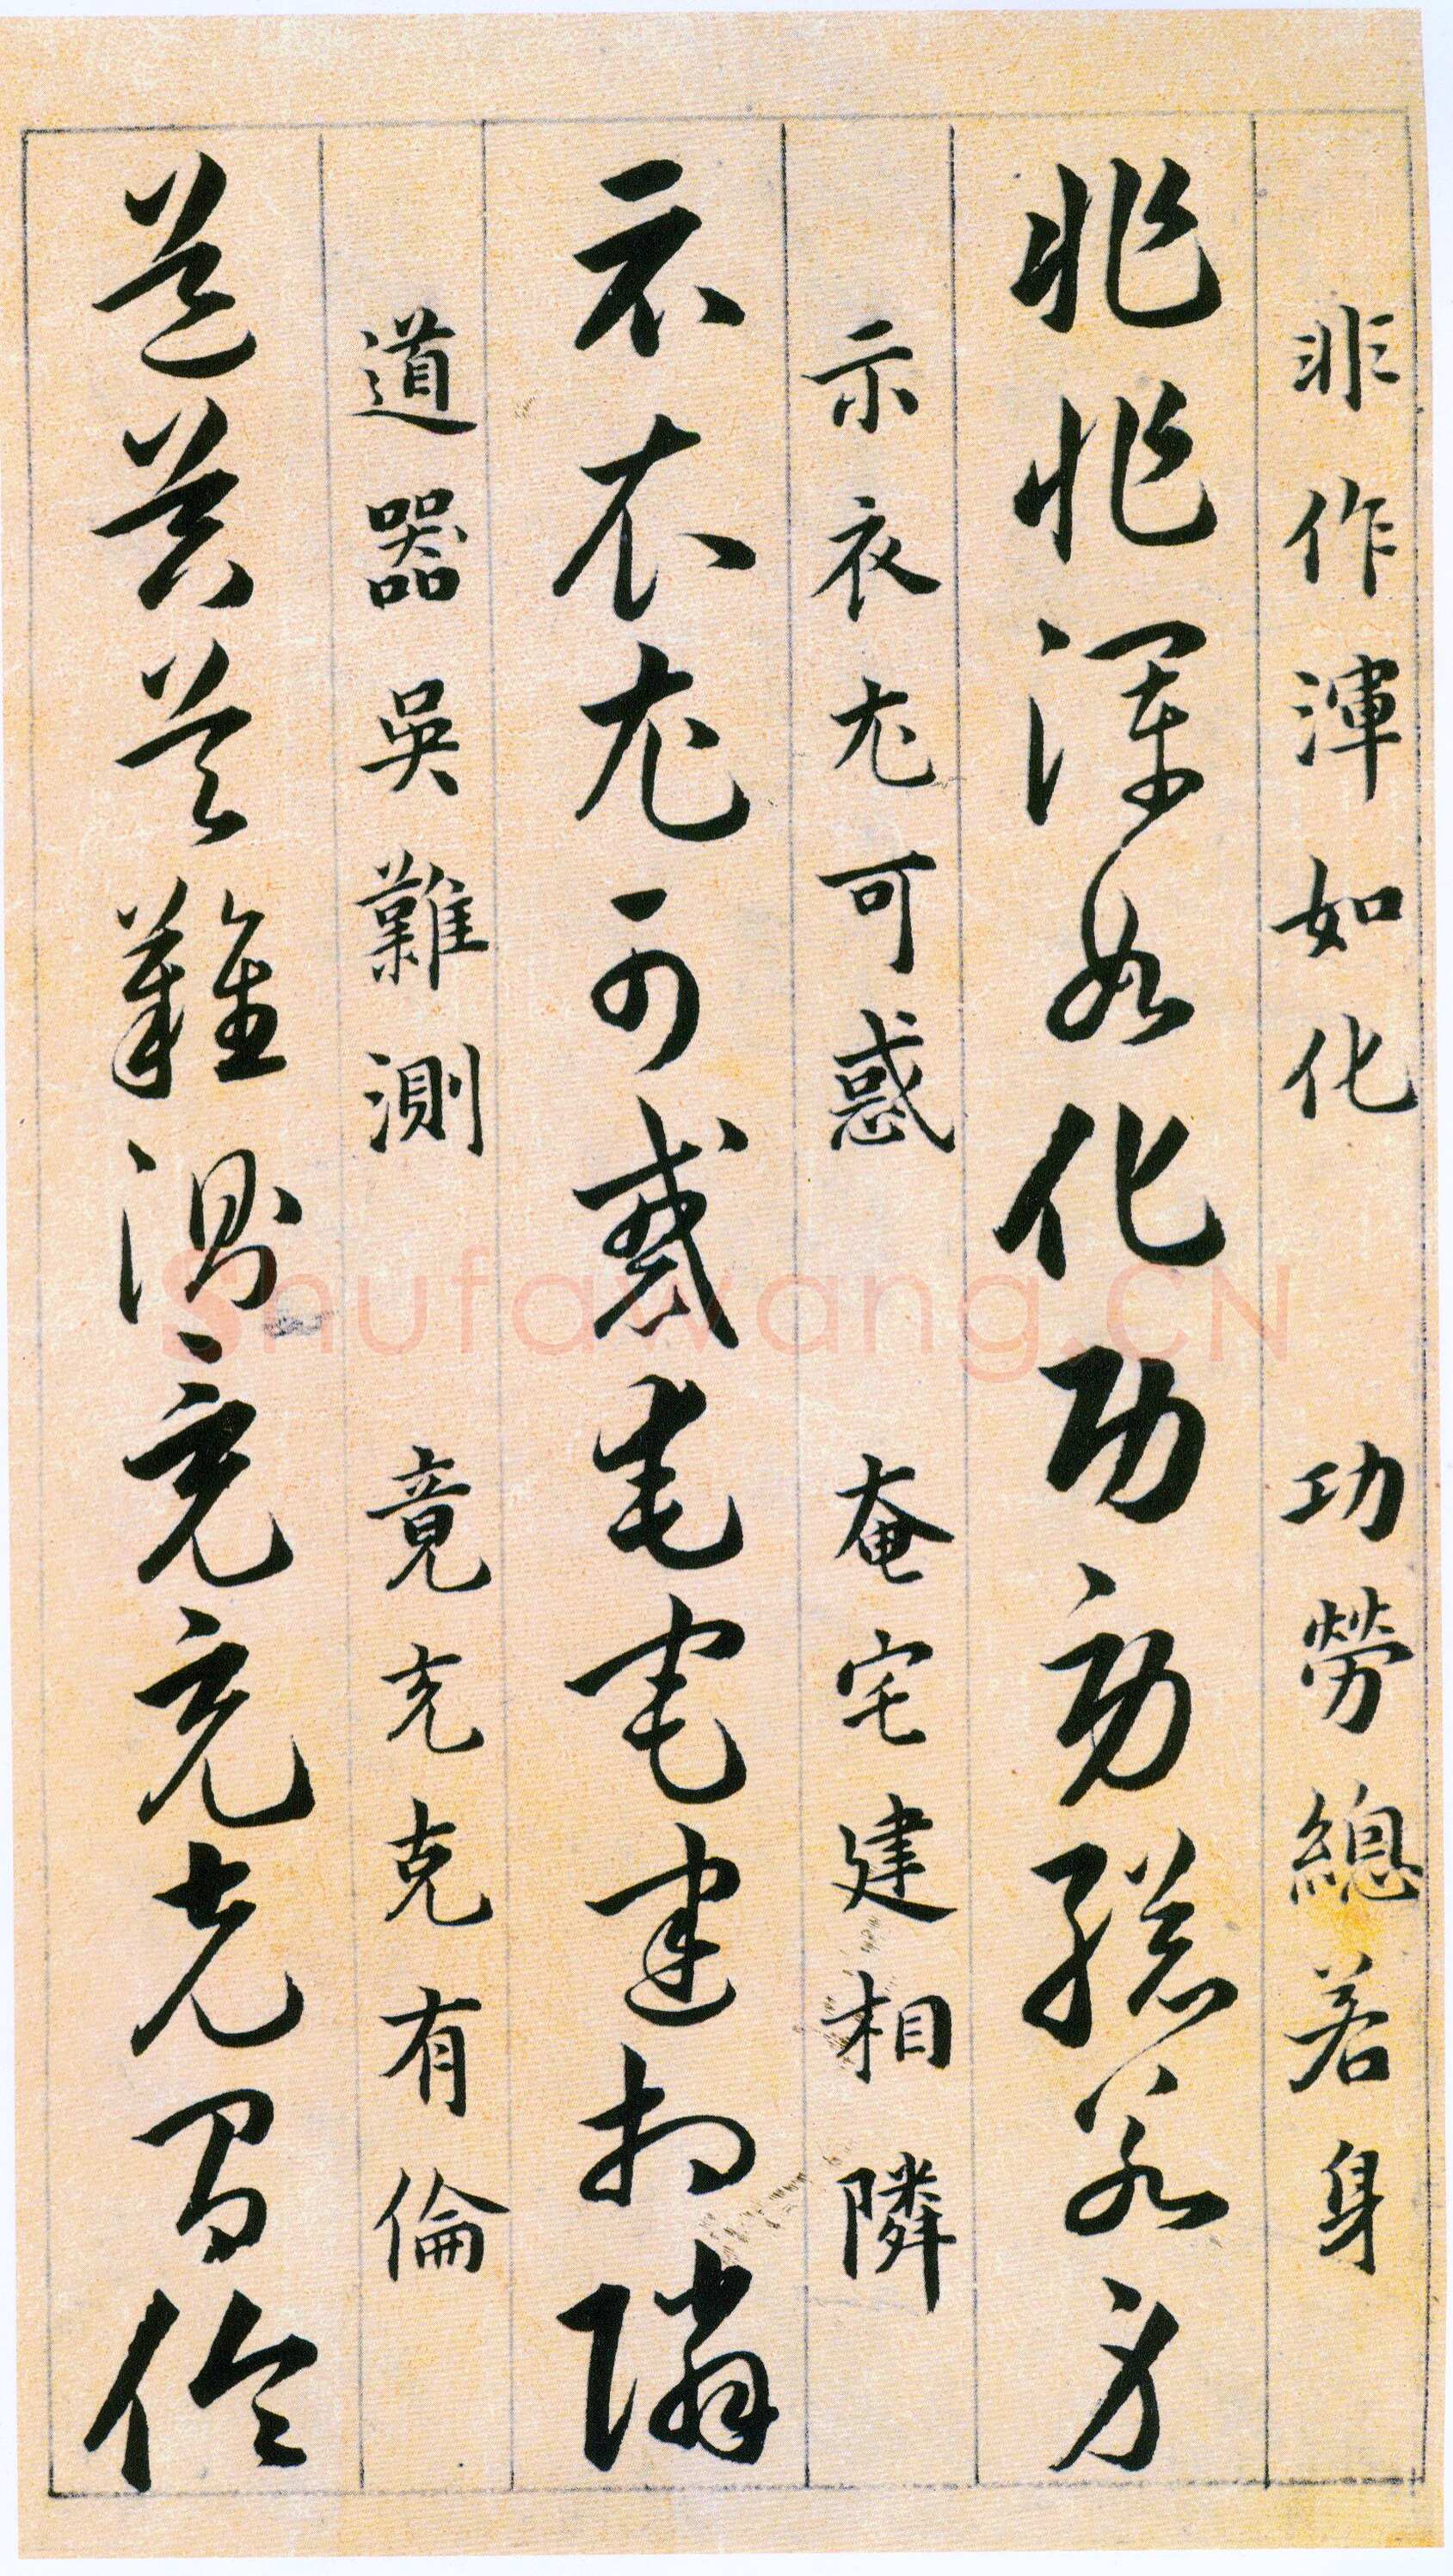 非作渾如化 功勞總若身
非作渾如化功勞總若身
示衣尤可惑 奄宅建相隣
示衣尤可惑奄宅建相隣
道器吳難測 竟充克有倫
道器吳難測竟充克有倫
Shufawang.CN